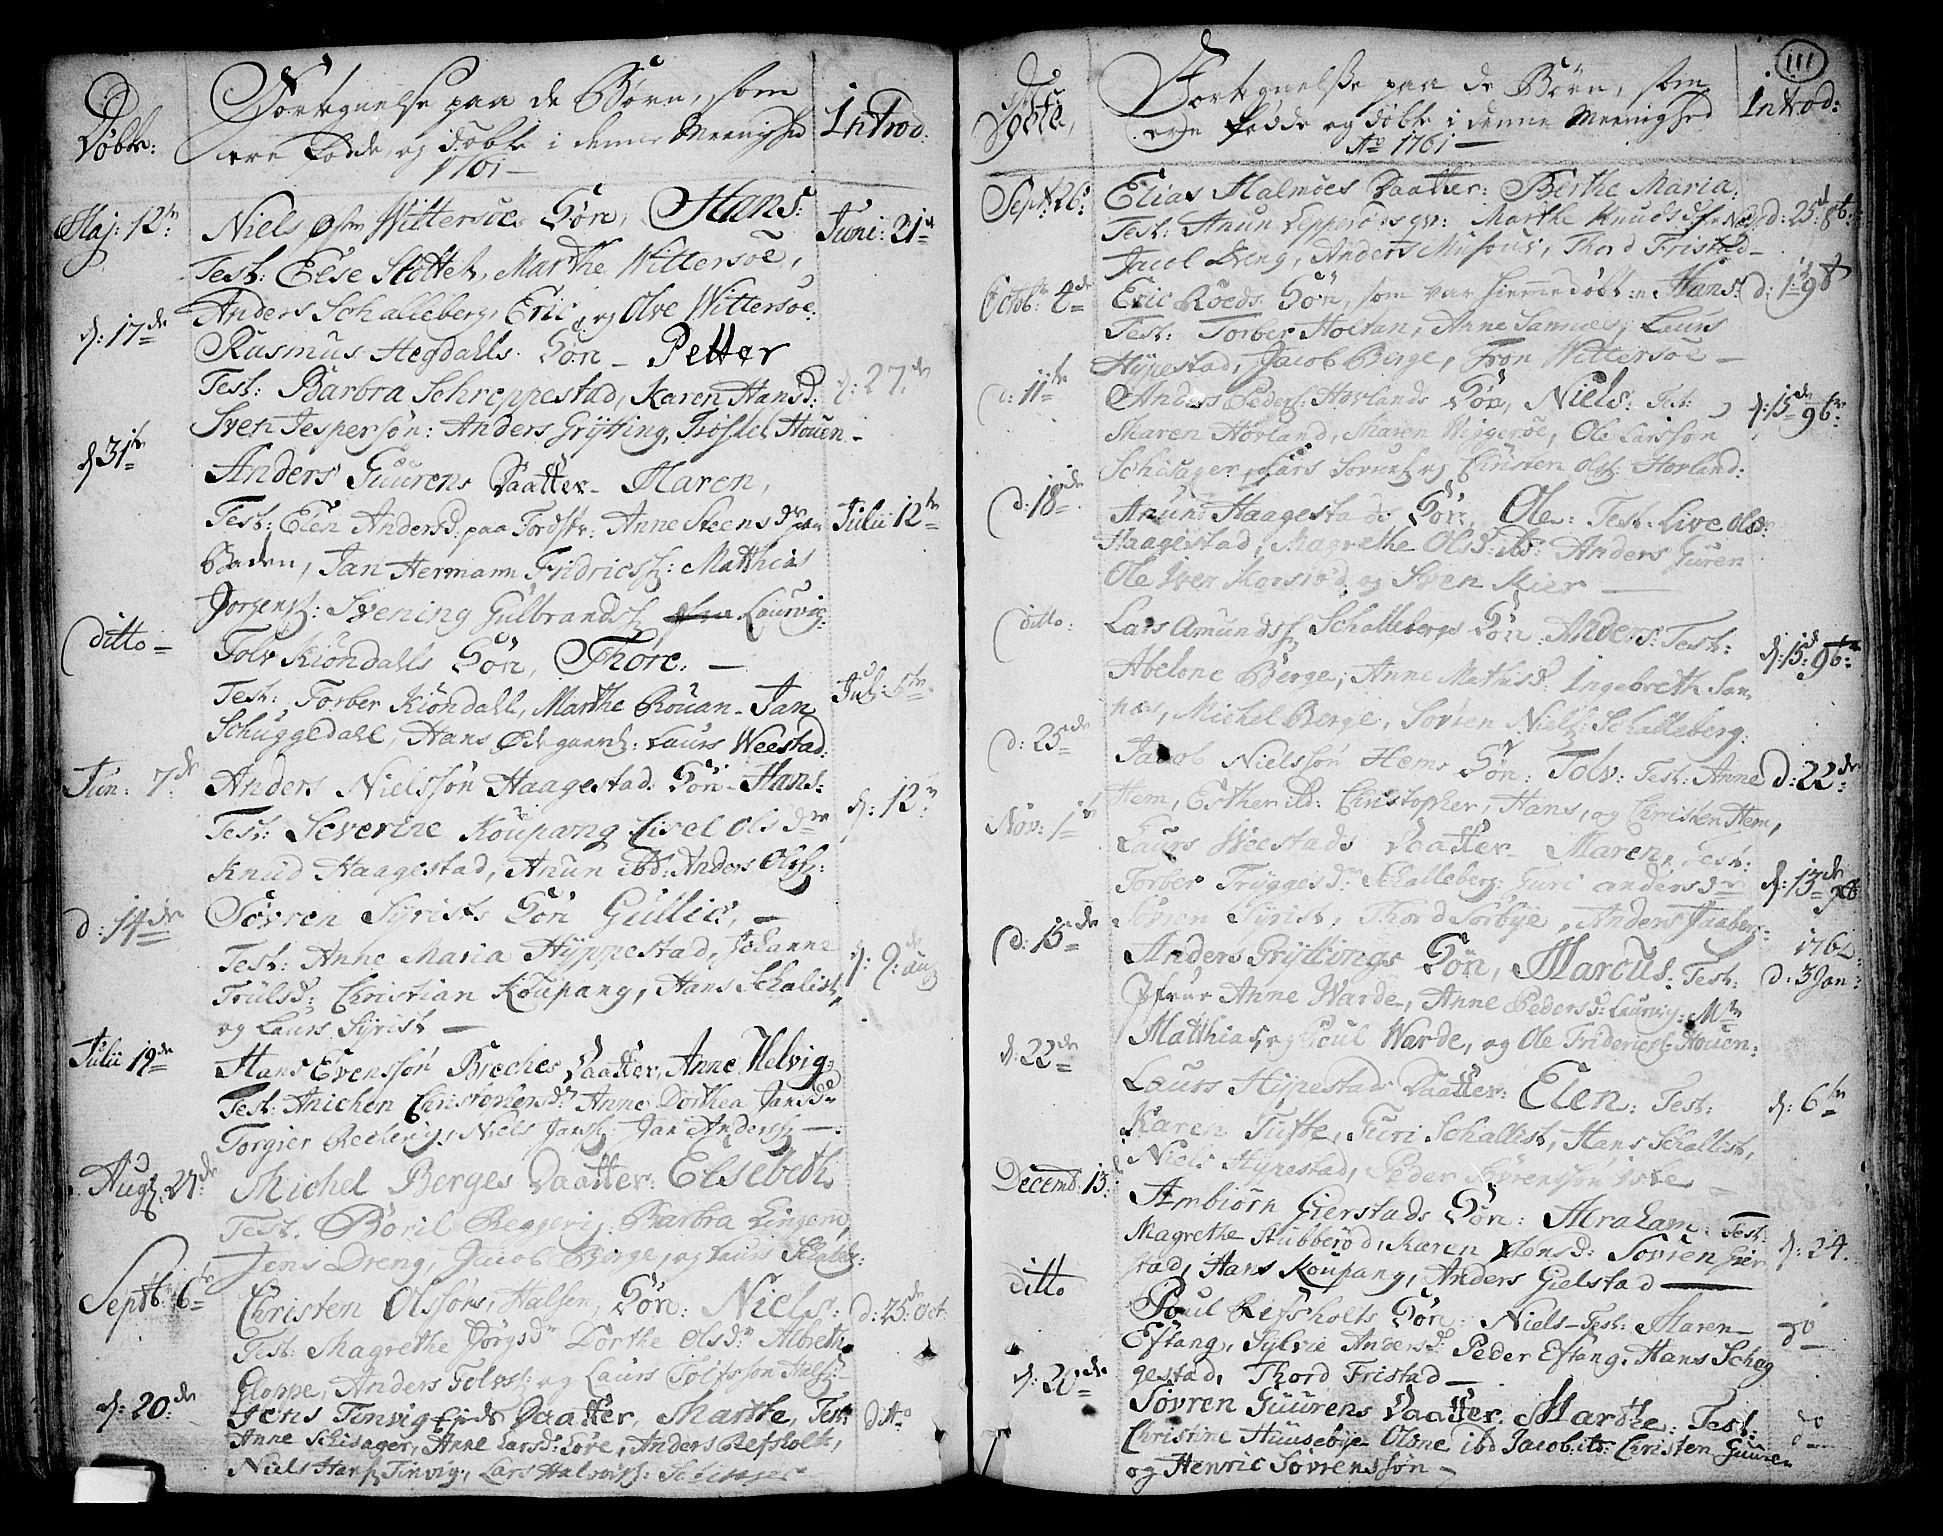 Døbte:
Fortegnelse paa de Børn, som
ere fødde og døbte i denne Meenighed
1761 —
Introd:
Maj: 12te
Niels Wittersøe Søn, Hans:
Juni: 21de
Test: Else Stottet, Marthe Wittersøe,
Anders Schalleberg, Eric, og Olve Wittersøe.
d: 17de
Rasmus Hegdahls Søn — Petter
Test: Barbra Schreppestad, Karen Hansd:
d: 27de
Sven Jespersøn: Anders Gryting, Trøstel Houen —
d 31te
Anders Guurens Daatter — Maren,
Test: Elen Andersd: paa Tordstr: Anne Steensdr paa
Julii 12te
Baden, Jan Hermann Fridrics: Matthias
Jørgens: Svening Gulbrands Laurvig:
ditto —
Tolv Kiöndalls Søn, Thore. —
Test: Torber Kiöndall, Marthe Rouan — Jan
Jul: 5te
Schuggedahl, Hans Ødegaard: Laurs Weestad:
Jun: 7de
Anders Nielssøn Haagestad Søn — Hans:
Test: Severine Koupang Lisel Olsdr
d: 12te
Knud Haagestad, Anun ibd: Anders Ols:
d: 14de
Søvren Syrists Søn Gullic, —
Test: Anne Maria Hyppestad, Johanne
d: 9de aug
Trulsd: Christian Koupang, Hans Schalist,
og Laurs Syrist —
Julii 19de
Hans Evenssøn Breches Daatter, Anne Helvig:
Test: Anichen Christophersdr Anne Dorthea Jansdr
Torgier Recherig, Niels Jans: Jan Anders —
Aug: 27de
Michel Berges Daatter: Elsebeth
Test: Boril Reggeri: Barbra Lingom,
Jens Dreng, Jacob Berge, og Laurs Schalle:
Septb: 6te
Christen Olssøns, Halsen, Søn: Niels:
d: 25de Oct.
Test: Magrethe Jørgsdr Dorthe Olsdr Albreth
Gloppe, Anders Tolvs: og Laurs Tolfssøn Hals:
d: 20de
Jens Tinvig Eje Daatter, Marthe, Test:
ditto
Anne Schisager, Anne Larsdr Søre, Anders Refsholt,
Niels Hans Tinvig, Lars Halvors: Schisager
111
Døbte,
Fortegnelse paa de Børn, som
ere fødde og døbte i denne Meenighed
Ao 1761 —
Introd:
Sept: 26
Elias Halmöes Daatter: Berthe Maria.
Test: Anun Lepperöds qv: Marthe Knudsd
d: 25de 8b:
Jacob Dreng, Anders Mosous, Thord Fristad —
Octob: 4de
Eric Röeds Søn, som var hiemmedøbt: n: Hans:
Test: Torber Holtan, Anne Samuels, Laurs
Hÿpestad, Jacob Berge, Tron Wittersøe —
d: 11te
Anders Peders: Hovlands Søn, Niels: Test:
d: 15de 9b:
Maren Hovland, Maren Wiggeröe, Ole Larssøn
Schisager, Lars Sorvet og Christen Ols: Hovland:
d: 18de
Anund Haagestads Søn, Ole: Test: Live Ols:
Haagestad, Magrethe Olsd: ibd: Anders Guren
Ole Iver Korsrød og Sven Kier —
ditto:
Lars Amunds Schallebergs Søn: Anders: Test:
d: 15: 9b:
Abelone Berge, Anne Mathisd: Ingebreth San
næs, Michel Berge, Sørren Niels: Schalleberg:
d: 25de
Jacob Nielssøn Hems Søn: Tolv: Test: Anne
d: 22de
Hem, Esther ibd: Christopher, Hans, og Christen Hem,
Nov: 1te
Laurs Weestads Daatter — Maren, Test:
Torber Tryggesdr Schalleberg: Guri Andersdr
d: 13de
Sövren Syrist, Thord Sörbye, Anders Faaber:
d: 15de
Anders Grytings Søn, Marcus: Test:
1762
d: 3 Jan:
Jfrue Anne Warde, Anne Pedersd: Laurvig: Mr
Matthias, og Poul Warde, og Ole Frideric: Houen:
d: 22de
Laurs Hÿpestads Daatter: Elen: Test:
d: 6te
Karen Tufte, Turi Schallist, Hans Schallist,
Niels Hÿpestad, Peder Sörenssøn Iske —
Decemb: 13:
Ambiörn Gierstads Søn: Abraham: Test:
Magrethe Stubberöd, Karen Jensd: Sovren Gier
d: 24.
stad, Hans Koupang, Anders Gielstad —
ditto
Poul Refsholts Søn: Niels — Test: Maren —
do
Eftang, Sylvie Andersd: Peder Eftang, Hans Schag
gestad, Thord Fristad —
d: 20de
Sövren Guurens Daatter: Marthe: Test:
do
Christine Huusebye Olsne ibd Jacob ibd: Christen Guuren
og Henric Sovrenssøn —